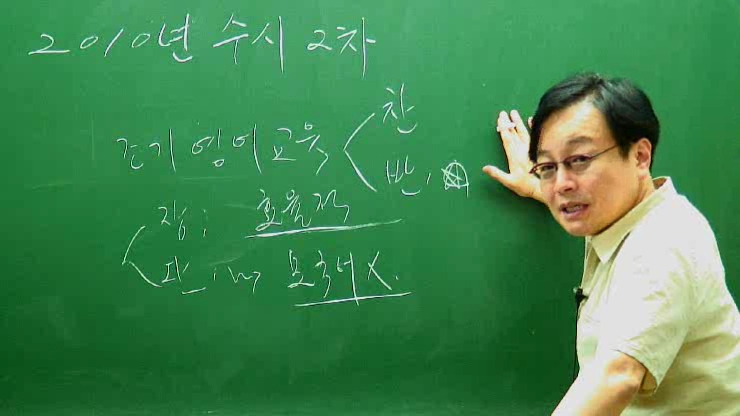 2010년 수시 2차
조기 영어교육 < 찬
반, ☆
장: 효율적
단: 모국어 X.